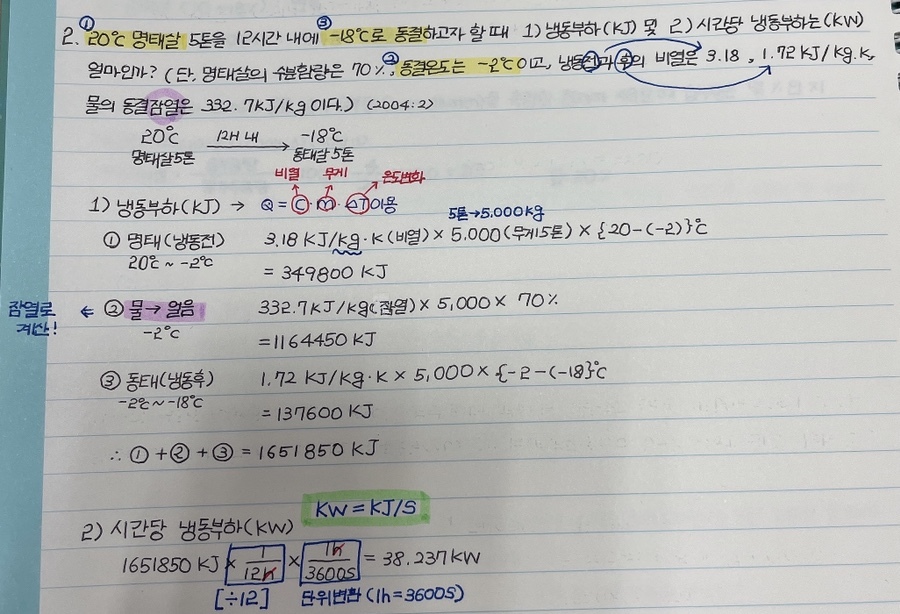 ① ③
2. 20℃ 명태살 5톤을 12시간 내에 -18℃로 동결하고자 할 때 1) 냉동부하(KJ) 및 2) 시간당 냉동부하는(KW)
②
얼마인가? (단, 명태살의 수분함량은 70%, 동결온도는 -2℃이고, 냉동전과 후의 비열은 3.18, 1.72 KJ/kg.k,
물의 동결잠열은 332.7KJ/kg이다.) (2004:2)
20℃ 12H 내 -18℃
명태살5톤 → 동태살 5톤
비열 무게 온도변화
1) 냉동부하(KJ) → Q = C·m·ΔT이용
5톤→5.000kg
① 명태(냉동전) 3.18 KJ/kg·K(비열) × 5.000(무게5톤) × {20-(-2)}℃
20℃ ~ -2℃
= 349800 KJ
잠열로 ← ② 물→얼음 332.7KJ/kg(잠열) × 5,000 × 70%
계산! -2℃
=1164450 KJ
③ 동태(냉동후) 1.72 KJ/kg·K × 5,000 × {-2-(-18)}℃
-2℃~-18℃
= 137600 KJ
∴ ① + ② + ③ = 1651850 KJ
KW = KJ/S
2) 시간당 냉동부하(KW)
1651850 KJ × 1/12h × 1h/3600S = 38.237KW
[÷12] 단위변환 (1h=3600S)